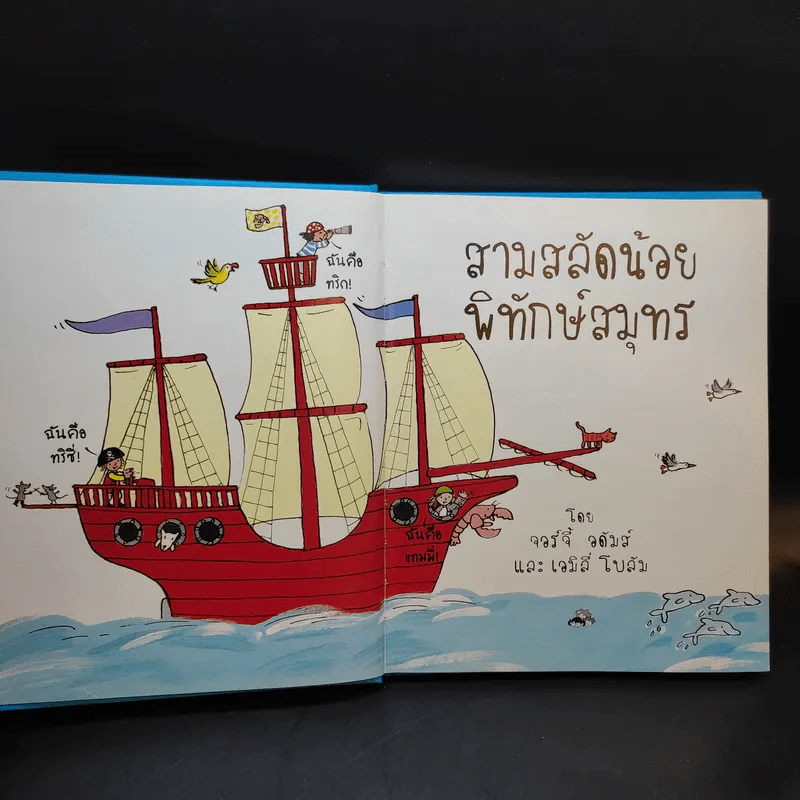 สามสลัดน้อย
พิทักษ์สมุทร
ฉันคือ
ทริก!
ฉันคือ
ทริซี่!
ฉันคือ
แทมมี่!
โดย
จอร์จี้ อดัมส์
และ เอมิลี่ โบลัม